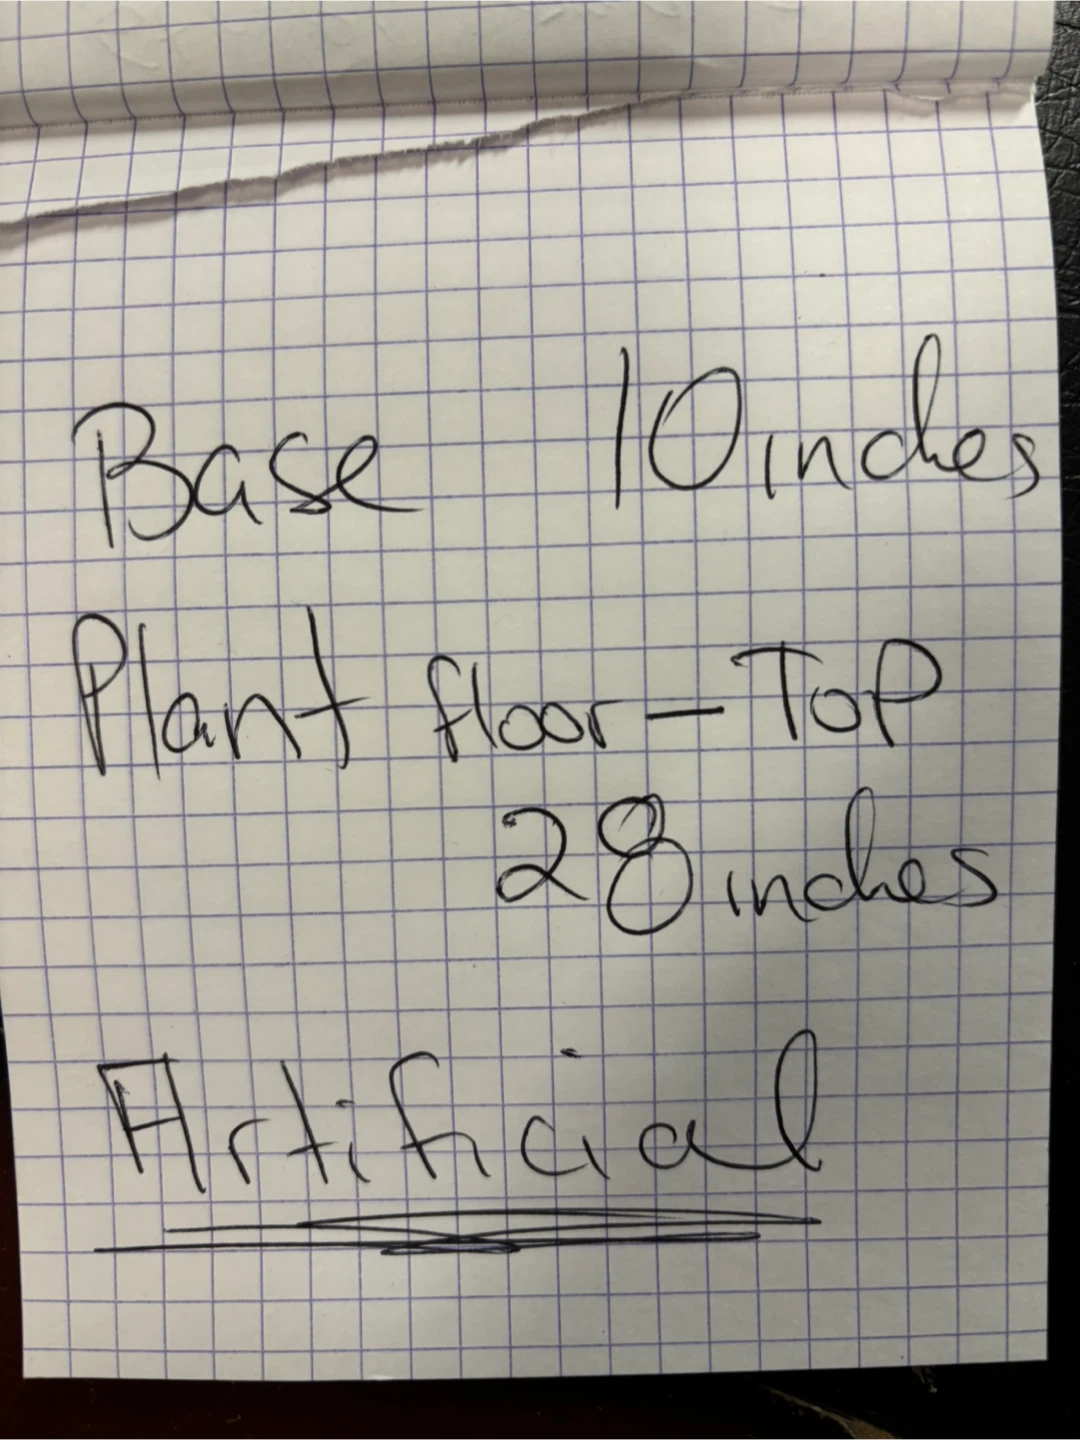 Base 10 inches
Plant floor - Top
28 inches
Artificial